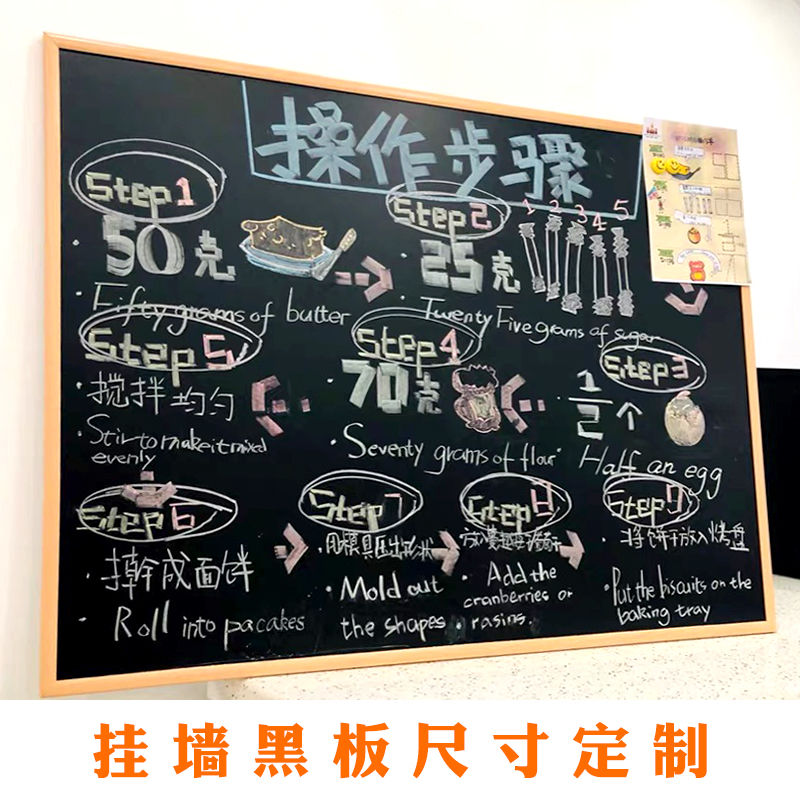 操作步骤
Step 1
50克
Fifty grams of butter
Step 2
25克
1 2 3 4 5
Twenty Five grams of sugar
Step 3
1/2个
Half an egg
Step 4
70克
Seventy grams of flour
Step 5
搅拌均匀
Stir to make it mixed
evenly
Step 6
擀成面饼
Roll into pacakes
Step 7
用模具压出形状
Mold out
the shapes
Step 8
Add the
cranberries or
rasins.
Step 9
将饼干放入烤盘
Put the biscuits on the
baking tray
挂墙黑板尺寸定制